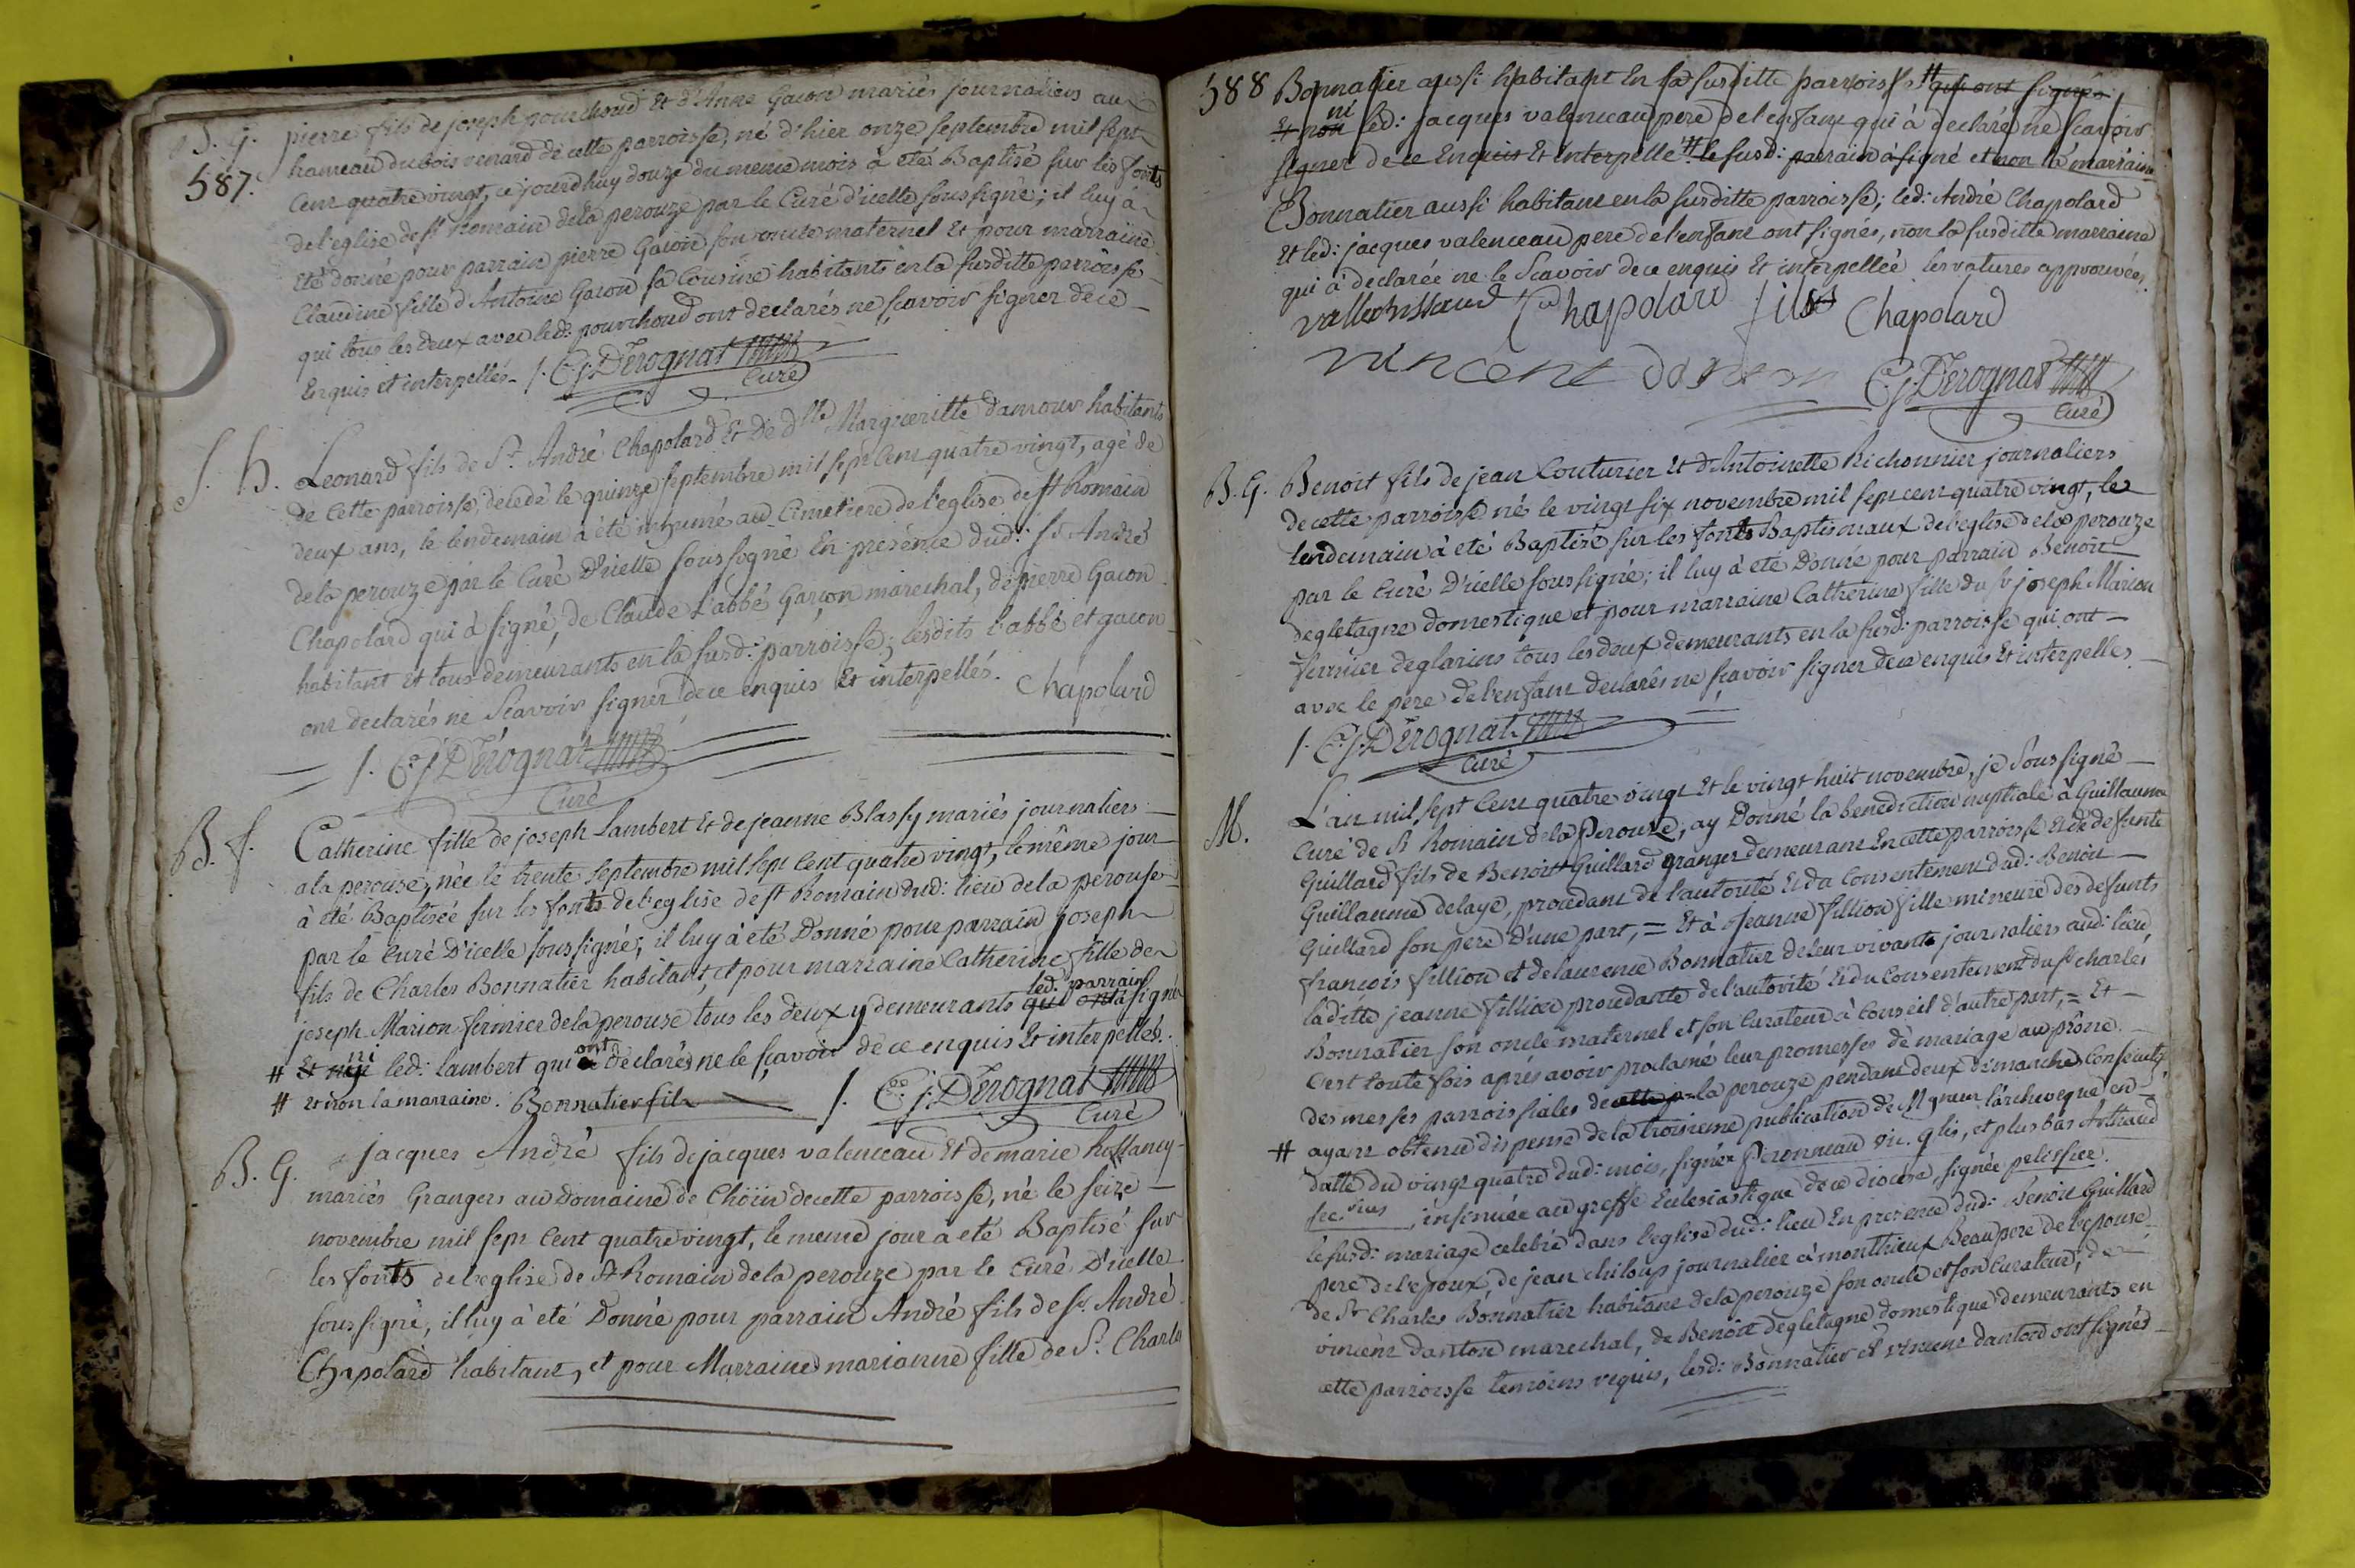 B. G. pierre fils de joseph pourchoud Et d'Anne Gacon mariés journaliers au
587. hameau du bois renard de cette parroisse, né d'hier onze septembre mil sept
Cent quatre vingt, ce jourd'huy douze du meme mois à eté Baptisé sur les fonts
de l'eglise de st Romain dela perouze par le Curé d'icelle soussigné; il luy à
Eté donné pour parrain pierre Gacon son oncle maternel Et pour marraine
Claudine fille d'Antoine Gacon sa Cousine habitants en la susditte parroisse
qui tous les deux avec led: pourchoud ont declarés ne sçavoir signer de ce
Enquis et interpellés. /. C. j. Dérognat
Curé
S. H. Leonard fils de Sr. André Chapolard Et De dlle Margueritte damour habitants
de Cette parroisse, decedé le quinze septembre mil sept Cent quatre vingt, agé de
deux ans, le lendemain à été inhumé au Cimetiere de l'eglise de st Romain
dela perouze par le Curé D'icelle soussigné En présence dud: sr André
Chapolard qui à signé, de Claude L'abbé Garçon marechal, de pierre Gacon
habitant Et tous demeurants en la susd: parroisse; lesdits l'abbé et gacon
ont declarés ne Scavoir signer de ce enquis Et interpellés. Chapolard
/. C. j. Dérognat
Curé
B. f. Catherine fille de joseph Lambert Et de jeanne Blassy mariés journaliers
a la perouse, née le trente Septembre mil sept Cent quatre vingt, le même jour
à eté Baptisée sur les fonts de l'eglise de st Romain dud: lieu dela perouse
par le Curé D'icelle soussigné; il luy à eté Donné pour parrain joseph
fils de Charles Bonnatier habitant, et pour marraine Catherine fille de
joseph Marion fermier dela perouse tous les deux y demeurants qui ont led: parrain à signé
# Et ni led: Lambert qui ont declarés ne le sçavoir de ce enquis Et interpellés.
# et non la marraine. Bonnatier fils /. C. j. Dérognat
Curé
B. G. jacques André fils de jacques valenceau Et de marie
mariés Grangers au Domaine de Chöin de cette parroisse, né le seize
novembre mil sept Cent quatre vingt, le meme jour a eté Baptisé sur
les fonts de l'eglise de St Romain dela perouze par le Curé D'icelle
soussigné, il luy à eté Donné pour parrain André fils de sr. André
Chapolard habitant, et pour Marraine marianne fille de Sr. Charles
588 Bonnatier aussi habitant En la susditte parroisse # qui ont signés
Et non ni led: jacques valenceau pere de l'enfant qui à declaré ne Scavoir
signer de ce Enquis Et interpellé # le susd: parrain à signé et non la marraine
Bonnatier aussi habitant en la susditte parroisse; led: André Chapolard
Et led: jacques valenceau pere de l'enfant ont signés, non la susditte marraine
qui à declarée ne le Scavoir de ce enquis Et interpellée les ratures approuvées.
Chapolard fils Chapolard
vincent danton C. j. Dérognat
Curé
B. G. Benoit fils de jean Couturier Et d'Antoinette Richonnier journaliers
de cette parroisse nés le vingt six novembre mil sept cent quatre vingt, le
lendemain à eté Baptisé sur les fonts Baptismaux de l'eglise de la perouze
par le Curé D'icelle soussigné; il luy à eté Donné pour parrain Benoit
degletagne domestique et pour marraine Catherine fille du sr joseph Marion
fermier deglarins tous les deux demeurants en la susd: parroisse qui ont
avec le pere de l'enfant declarés ne sçavoir signer de ce enquis Et interpellés
/. C. j. Dérognat
Curé
M. L'an mil sept Cent quatre vingt Et le vingt huit novembre, je Soussigné
Curé de St Romain dela Perouze, ay Donné la benediction nuptiale à Guillaume
Guillard fils de Benoit Guillard granger demeurant En cette parroisse Et de defunte
Guillaume delaye, procedant de l'autorité Et du Consentement dud: Benoit
Guillard son pere D'une part, = Et à Jeanne fillion fille mineure des defunts
françois fillion et de laurence Bonnatier de leur vivants journaliers aud: lieu,
laditte jeanne fillion procedante de l'autorité Et du Consentement du sr charles
Bonnatier son oncle maternel et son Curateur à Conseil d'autre part, = Et
C'est toute fois aprés avoir proclamé leur promesses de mariage au prône
des messes parroissiales de cette p la perouze pendant deux dimanches Consecutifs
# ayant obtenu dispense de la troisieme publication de Mgneur l'archeveque en
datte du vingt quatre dud: mois, signée Peronneau vic. glis, et plus bas Arthaud
secrius, insinuée au greffe Ecclesiastique de ce diocese, signée pelissier.
le susd: mariage celebré dans l'eglise dud: lieu En presence dud: Benoit Guillard
pere de l'epoux, de jean chiloup journalier à monthieux Beaupere de l'epouse
de Sr Charles Bonnatier habitant dela perouze son oncle et son Curateur, de
vincent danton marechal, de Benoit degletagne domestique demeurants en
cette parroisse temoins requis, lesd: Bonnatier et vincent danton ont signés